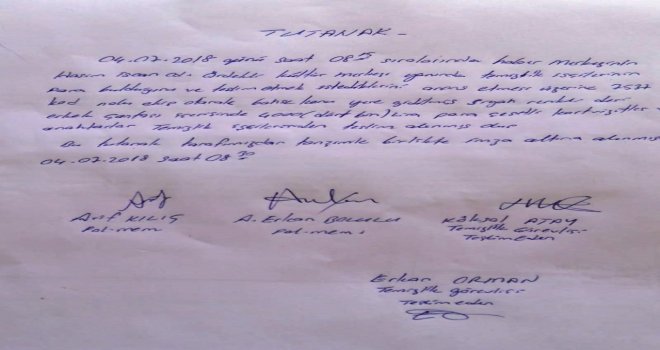 TUTANAK
04.07.2018 günü saat 08:15 sıralarında haber merkezinin
Haşim İşcan cd. Ördekli kültür merkezi yanında temizlik işçilerinin
para bulduğunu ve teslim etmek istediklerini anons etmesi üzerine 2537
kod nolu ekip olarak bahse konu yere gidilmiş siyah renkli deri
erkek çantası içerisinde 4000 (dört bin) lira para çeşitli kartvizitler
anahtarlar Temizlik işçilerinden teslim alınmış dır
Bu tutanak tarafımızdan tanzimle birlikte imza altına alınmış
04.07.2018 saat 08:30
Arif KILIÇ A. Erkan Köksal ATAY
Pol. mem. Pol. mem. Temizlik Görevlisi
Teslim Eden
Erkan ORMAN
Temizlik görevlisi
Teslim eden